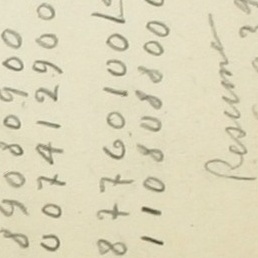 89080900
007412900
87760100
1108088000
Resume